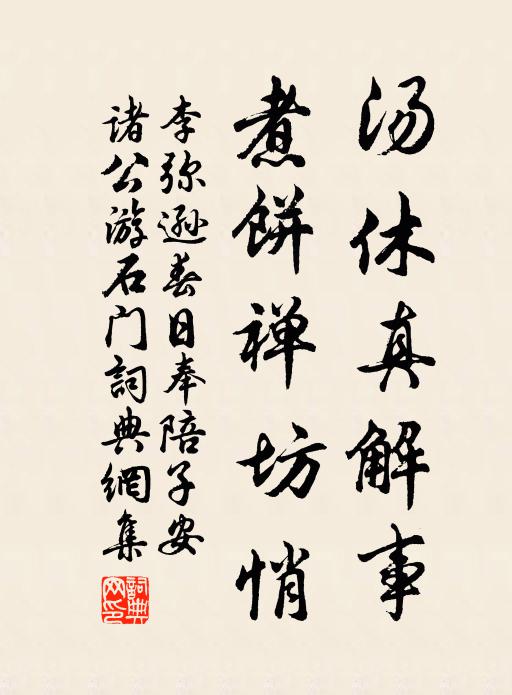 汤休真解事
煮餅禅坊悄
李弥遜春日奉陪子安
诸公游石门詞典網集
詞典网印